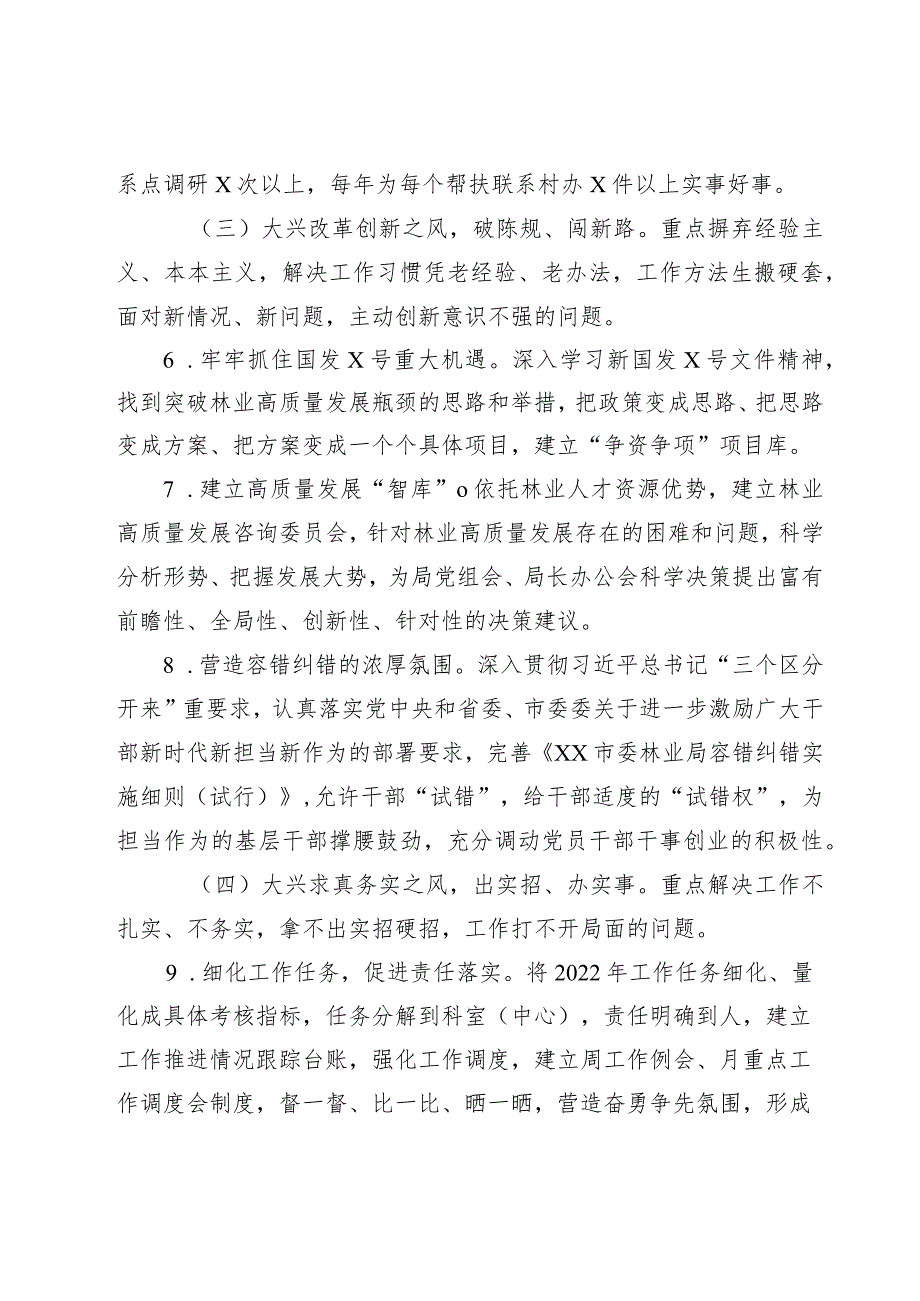 系点调研X次以上，每年为每个帮扶联系村办X件以上实事好事。
（三）大兴改革创新之风，破陈规、闯新路。重点摒弃经验主
义、本本主义，解决工作习惯凭老经验、老办法，工作方法生搬硬套，
面对新情况、新问题，主动创新意识不强的问题。
6 .牢牢抓住国发X号重大机遇。深入学习新国发X号文件精神，
找到突破林业高质量发展瓶颈的思路和举措，把政策变成思路、把思路
变成方案、把方案变成一个个具体项目，建立“争资争项”项目库。
7 .建立高质量发展“智库”o依托林业人才资源优势，建立林业
高质量发展咨询委员会，针对林业高质量发展存在的困难和问题，科学
分析形势、把握发展大势，为局党组会、局长办公会科学决策提出富有
前瞻性、全局性、创新性、针对性的决策建议。
8 .营造容错纠错的浓厚氛围。深入贯彻习近平总书记“三个区分
开来”重要求，认真落实党中央和省委、市委委关于进一步激励广大干
部新时代新担当新作为的部署要求，完善《XX市委林业局容错纠错实
施细则（试行）》,允许干部“试错”，给干部适度的“试错权”，为
担当作为的基层干部撑腰鼓劲，充分调动党员干部干事创业的积极性。
（四）大兴求真务实之风，出实招、办实事。重点解决工作不
扎实、不务实，拿不出实招硬招，工作打不开局面的问题。
9 .细化工作任务，促进责任落实。将2022年工作任务细化、量
化成具体考核指标，任务分解到科室（中心），责任明确到人，建立
工作推进情况跟踪台账，强化工作调度，建立周工作例会、月重点工
作调度会制度，督一督、比一比、晒一晒，营造奋勇争先氛围，形成